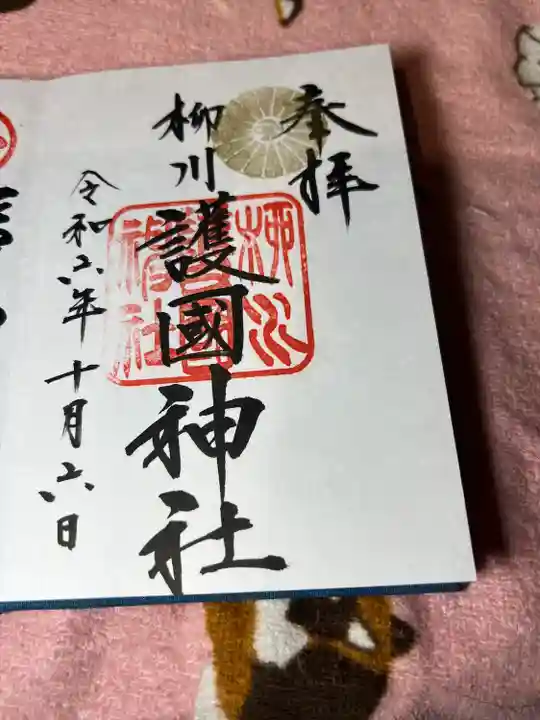 奉拝
柳川
護國神社
柳川
護國
神社
令和六年十月六日